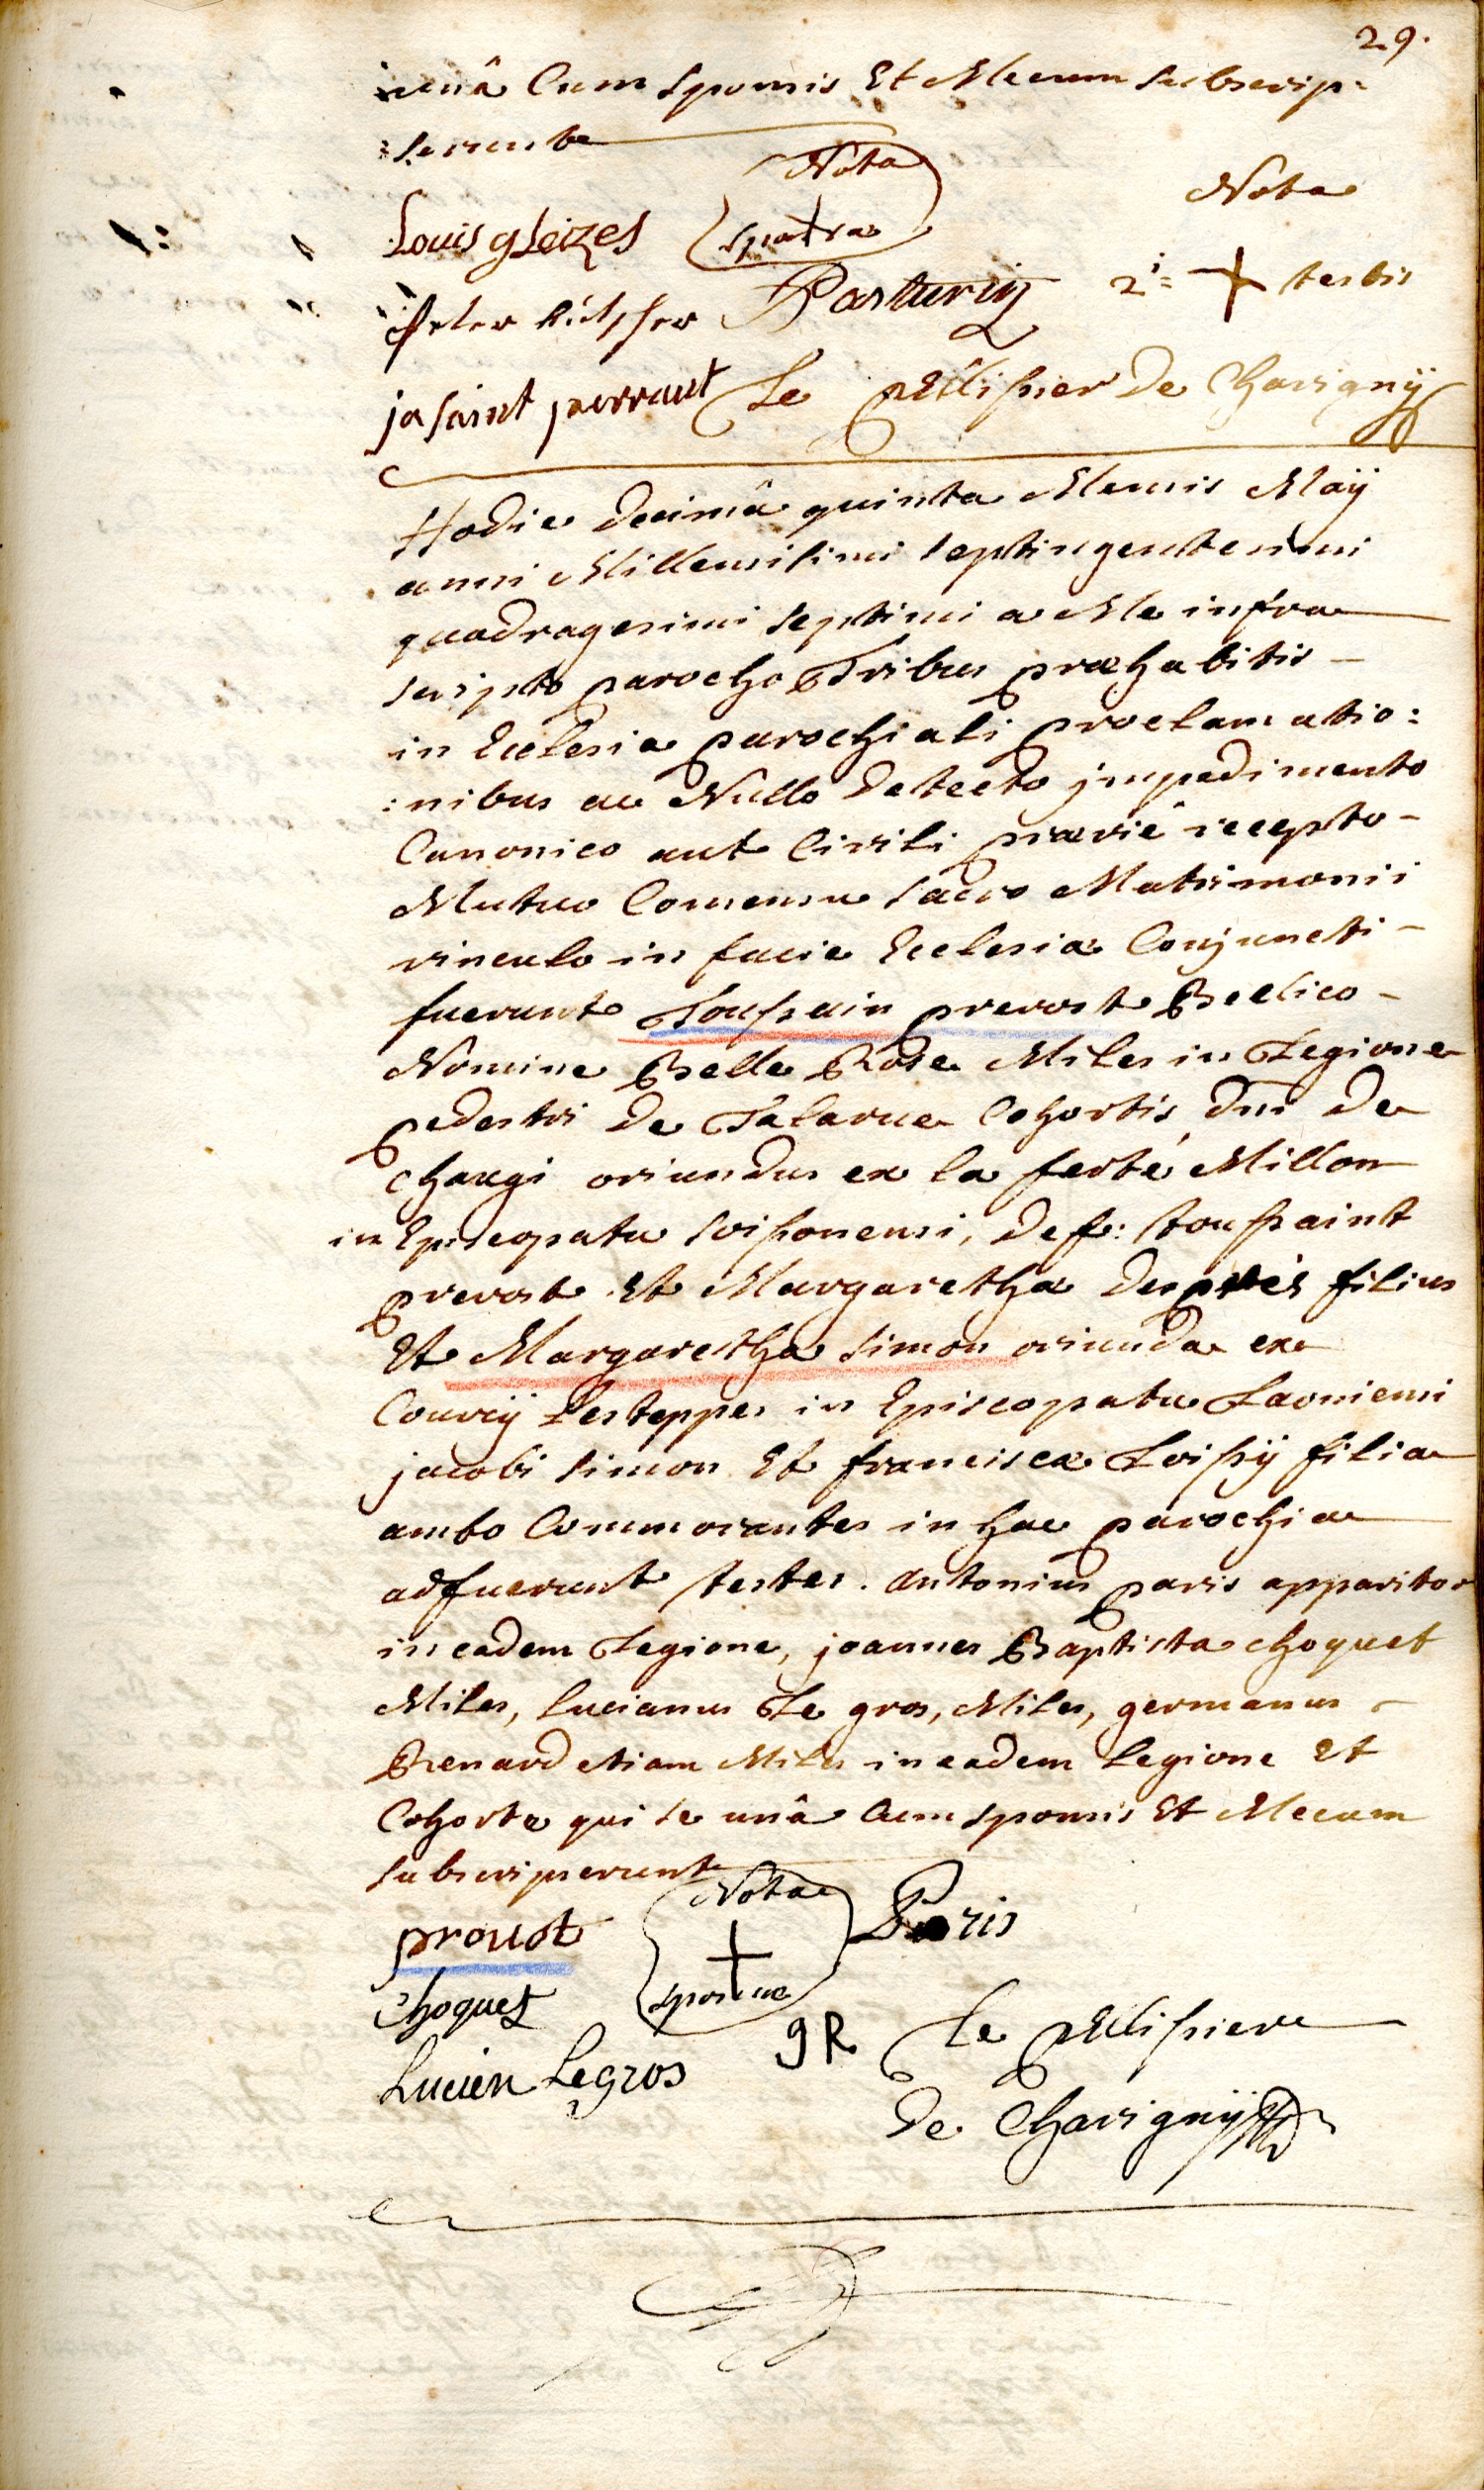 29.
unâ Cum sponsis Et Mecum subscrip=
=serunt
Nota
Louis gleizes
sponsa
Nota
Peter
Parturiy
2i= testis
ja saint perraut
Le Pellissier De Chavignÿ
Hodie decimâ quinta Mensis Maÿ
anni Millesimi septingentesimi
quadragesimi septimi a Me infra
scripto parocho Tribus præhabitis -
in Ecclesia parochiali proclamatio:
:nibus ac Nullo Detecto jmpedimento
Canonico aut Civili prævie recepto -
Mutuo Consensu sacro Matrimonii
vinculo in facie Ecclesiæ Conjuncti -
fuerunt Toussain prevost Bellico -
Nomine Belle Rose Miles in Legione
pedestri de Talarue Cohortis dni de
chaugi oriundus ex la ferté Millon
in Episcopatu soissonensi, def: toussaint
prevost Et Margaretha desprès filius
Et Margaretha simon oriunda ex
Courcÿ Lesteppes in Episcopatu Laoniensi
jacobi simon Et franciscæ Loissÿ filia
ambo Commorantes in hac parochia
adfuerunt testes. antonius paris apparitor
in eadem Legione, joannes Baptista choquet
Miles, lucianus Le gros, Miles, germanus -
Renard etiam Miles in eadem Legione Et
Cohorte qui se unâ Cum sponsis Et Mecum
subscripserunt
Nota
provot
Paris
sponsæ
Choquet
gR
Le Pellissier
Lucien Legros
De Chavignÿ